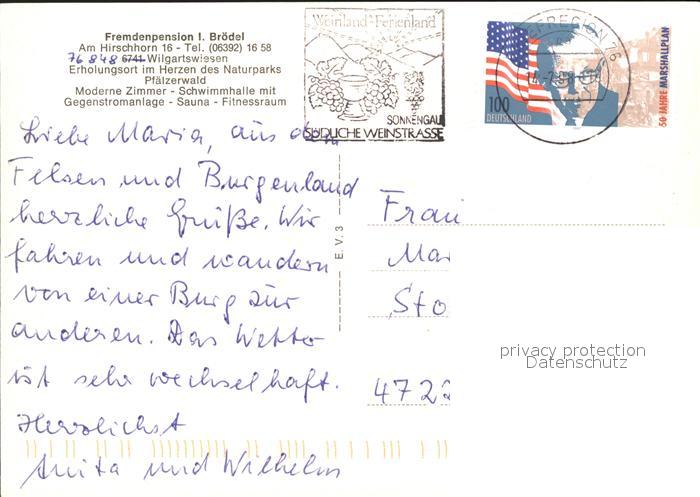 Fremdenpension I. Brödel
Am Hirschhorn 16 - Tel. (06392) 16 58
76848 6741 Wilgartswiesen
Erholungsort im Herzen des Naturparks
Pfälzerwald
Moderne Zimmer - Schwimmhalle mit
Gegenstromanlage - Sauna - Fitnessraum
Weinland-Ferienland
SONNENGAU
SÜDLICHE WEINSTRASSE
BRIEFREGION 76
100
DEUTSCHLAND
50 JAHRE MARSHALLPLAN
Liebe Maria, aus dem
Felsen und Burgenland
herzliche Grüße. Wir
fahren und wandern
von einer Burg zur
anderen. Das Wetter
ist sehr wechselhaft.
Herzlichst
Anita und Wilhelm
E.V. 3
Frau
Mar
Sto
4722
privacy protection
Datenschutz